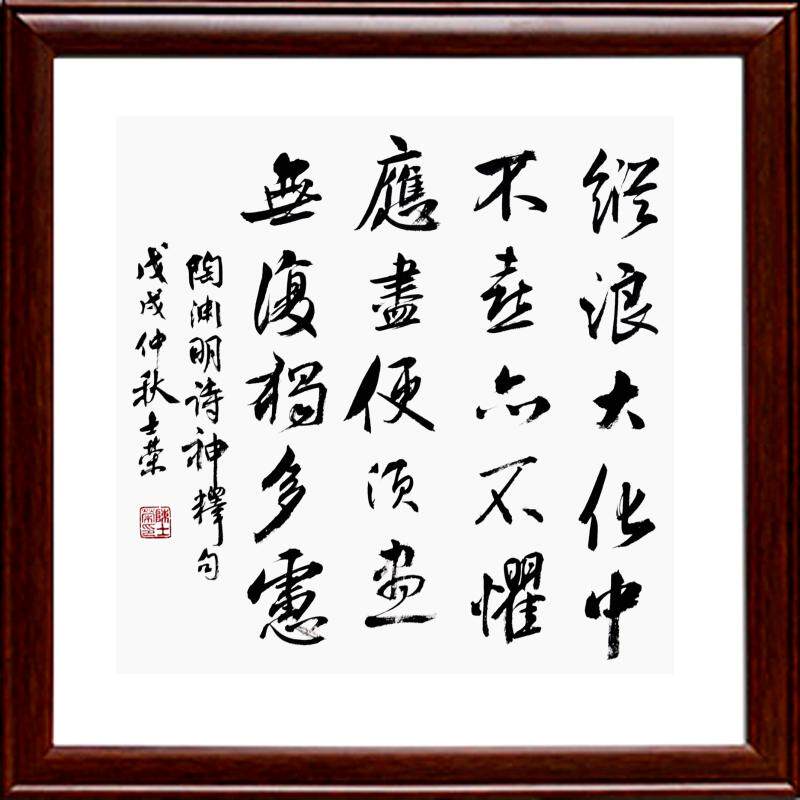 縱浪大化中
不喜亦不懼
應盡便須盡
無復獨多慮
陶渊明诗神釋句
戊戌仲秋士榮
陳士榮印